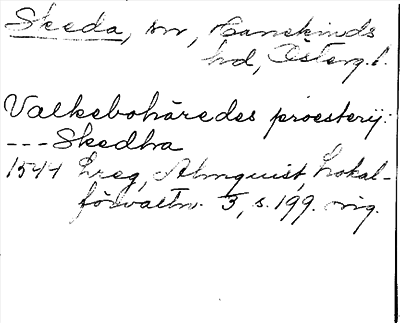 Skeda, sn, Hanekinds
hd, Österg.l.
Valkebohäredes proesterij:
---Skedha
1544 Lreg, Almquist, Lokal-
förvaltn. 3, s. 199. orig.